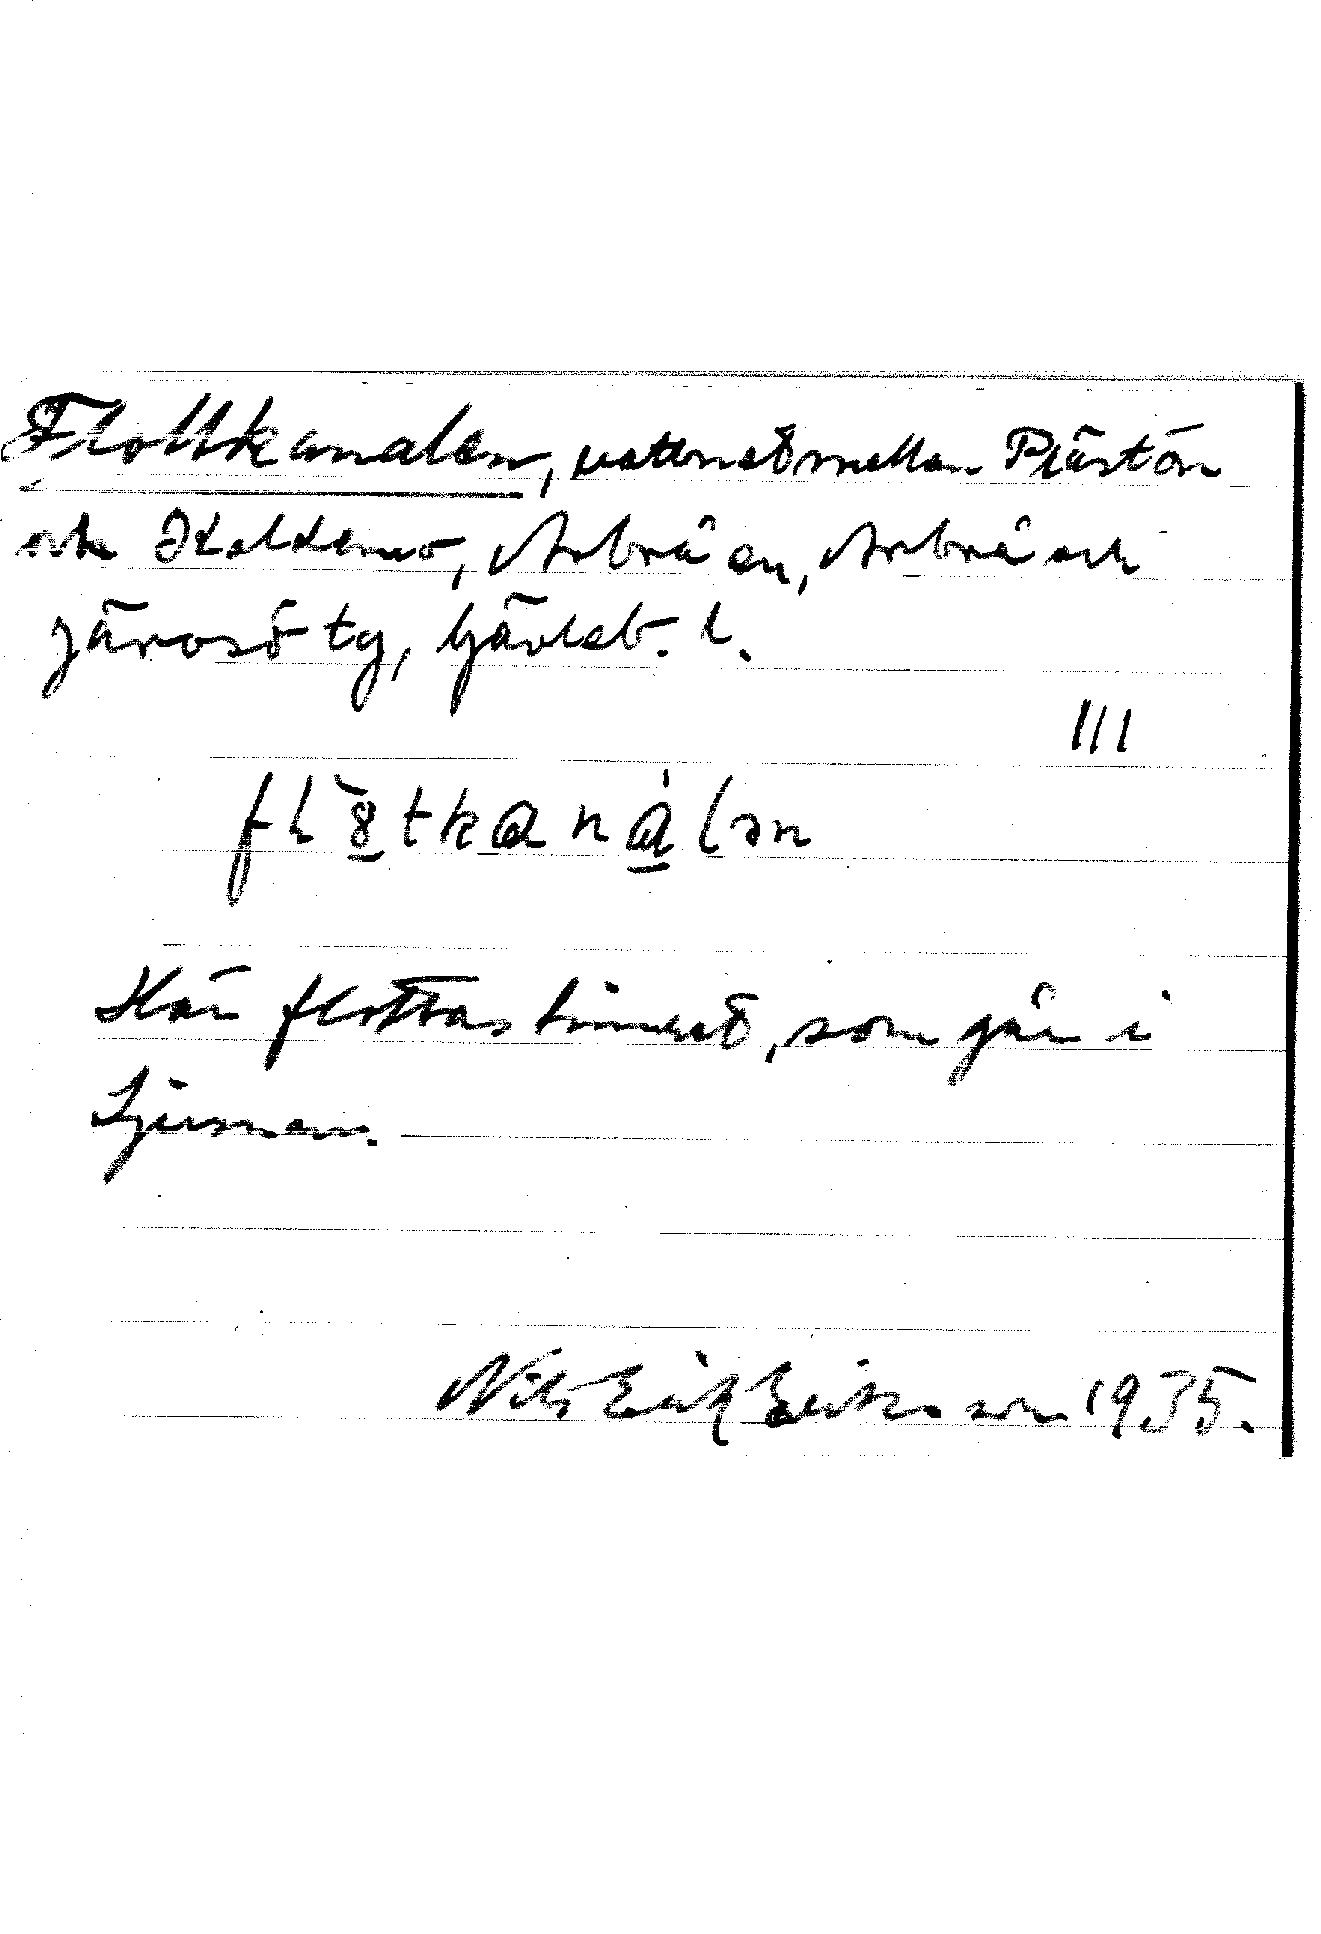 Flottkanalen, vattnet mellan Prästön
och Koldemo, Arbrå sn, Arbrå och
Järvsö tg, Gävleb. l.
III
Här flottas timret, som går i
Ljusnan.
Nils Erik Eriksson 1935.